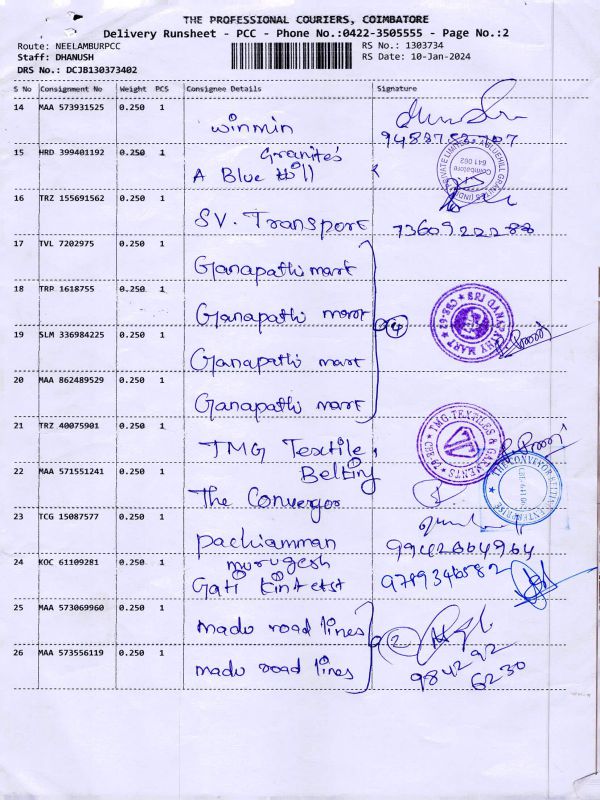 THE PROFESSIONAL COURIERS, COIMBATORE
Delivery Runsheet - PCC - Phone No.:0422-3505555 - Page No.:2
Route: NEELAMBURPCC
Staff: DHANUSH
DRS No.: DCJB130373402
RS No.: 1303734
RS Date: 10-Jan-2024
S No Consignment No Weight PCS Consignee Details Signature
14 MAA 573931525 0.250 1
winmin
15 HRD 399401192 0.250 1
Granites
A Blue Hill
16 TRZ 155691562 0.250 1
SV. Transport 7360922288
17 TVL 7202975 0.250 1
Ganapathi mart
18 TRP 1618755 0.250 1
Ganapathi mart
4
SRI GANAPATHY MART
CBE-62
19 SLM 336984225 0.250 1
Ganapathi mart
20 MAA 862489529 0.250 1
Ganapathi mart
21 TRZ 40075901 0.250 1
TMG Textile
TMG TEXTILES & GARMENTS
22 MAA 571551241 0.250 1
Belting
The Conveyor
THE CONVEYOR BELTING ENTERPRISE
23 TCG 15087577 0.250 1
Pachiamman 9942664964
24 KOC 61109281 0.250 1
murugesh
Gati 9789346582
25 MAA 573069960 0.250 1
madu road lines
2
26 MAA 573556119 0.250 1
madu road lines
984292
6230